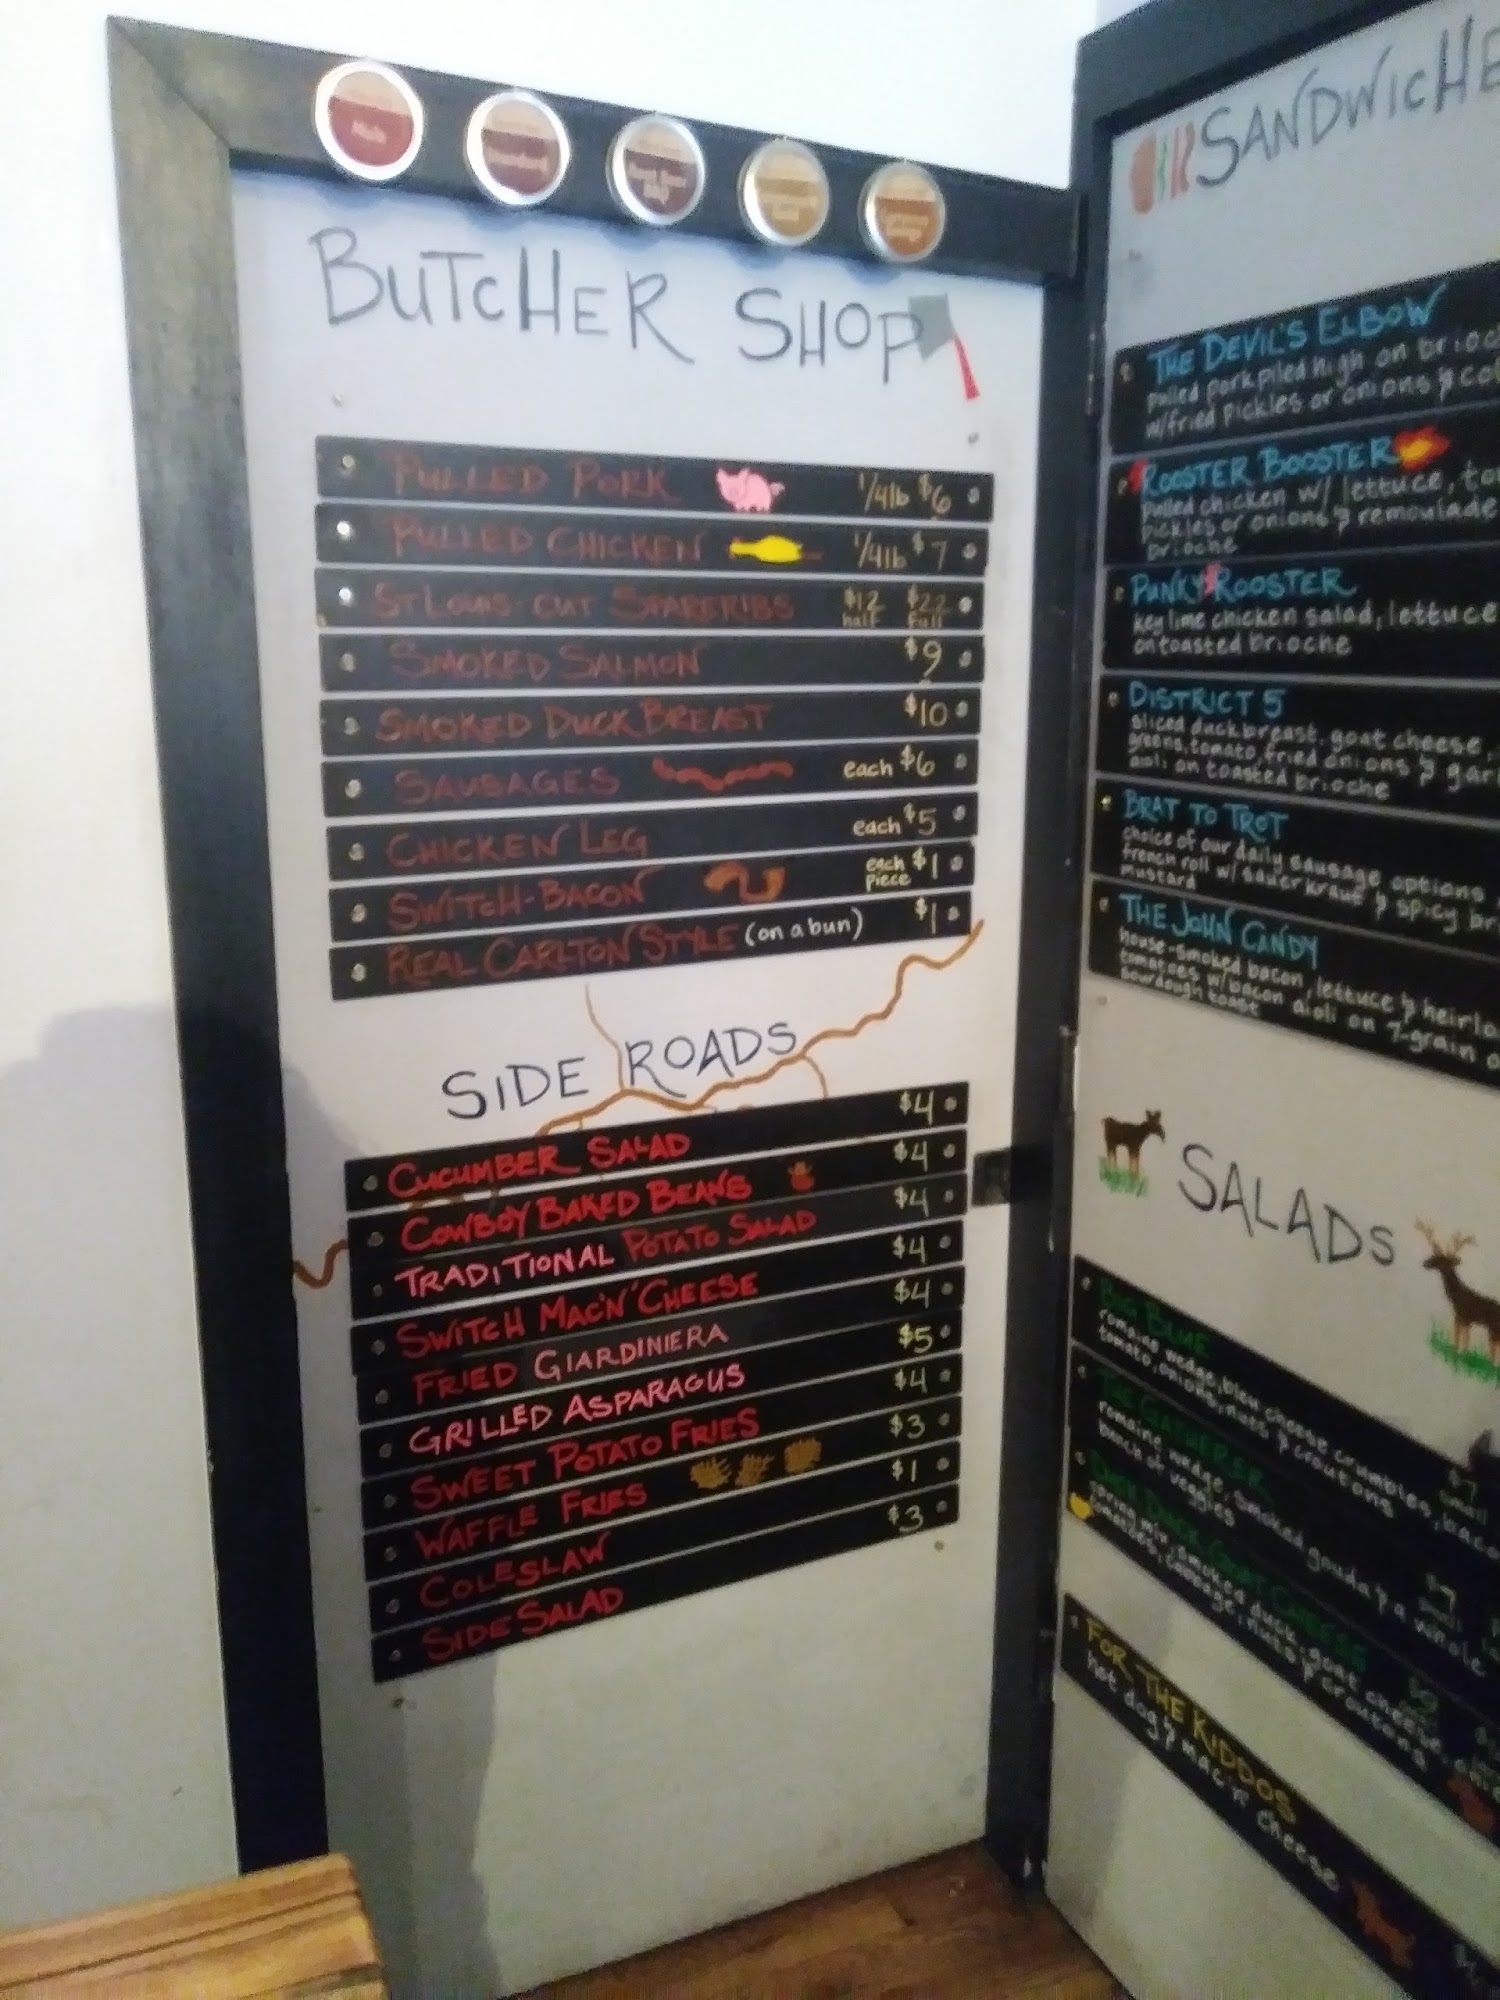 BUTCHER SHOP
PULLED PORK 1/4lb $6
PULLED CHICKEN 1/4lb $7
ST LOUIS-CUT SPARERIBS $12 half $22 full
SMOKED SALMON $9
SMOKED DUCK BREAST $10
SAUSAGES each $6
CHICKEN LEG each $5
SWITCH-BACON each piece $1
REAL CARLTON STYLE (on a bun) $1
SIDE ROADS
CUCUMBER SALAD $4
COWBOY BAKED BEANS $4
TRADITIONAL POTATO SALAD $4
SWITCH MAC'N'CHEESE $4
FRIED GIARDINIERA $4
GRILLED ASPARAGUS $5
SWEET POTATO FRIES $4
WAFFLE FRIES $3
COLESLAW $1
SIDE SALAD $3
SANDWICHE
THE DEVIL'S ELBOW
pulled pork piled high on brioc
w/fried pickles or onions & col
ROOSTER BOOSTER
pulled chicken w/ lettuce, to
pickles or onions & remoulade
brioche
PUNKY ROOSTER
key lime chicken salad, lettuce
on toasted brioche
DISTRICT 5
sliced duck breast, goat cheese,
greens, tomato, fried onions & gar
aioli on toasted brioche
BRAT TO TROT
choice of our daily sausage options
french roll w/ sauerkraut & spicy br
mustard
THE JOHN CANDY
house-smoked bacon, lettuce & heirlo
tomatoes w/bacon aioli on 7-grain o
sourdough toast
SALADS
BIG BLUE
romaine wedge, bleu cheese crumbles, baco
tomato, onions, nuts & croutons $7
small
THE GATHERER
romaine wedge, smoked gouda & a whole
bunch of veggies
DUCK DUCK GOAT CHEESE $9
spring mix, smoked duck, goat cheese,
tomatoes, cabbage, nuts & croutons
FOR THE KIDDOS
hot dog & mac 'n' cheese